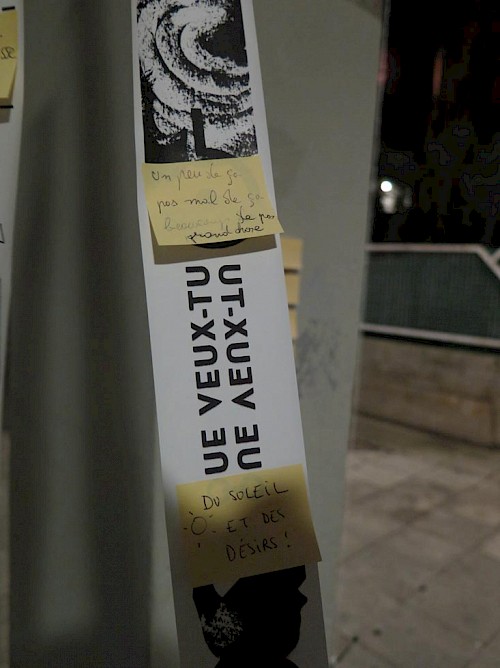 un peu de ça
pas mal de ça
beaucoup
grand chose
UE VEUX-TU
UE VEUX-TU
DU SOLEIL
ET DES
DÉSIRS !